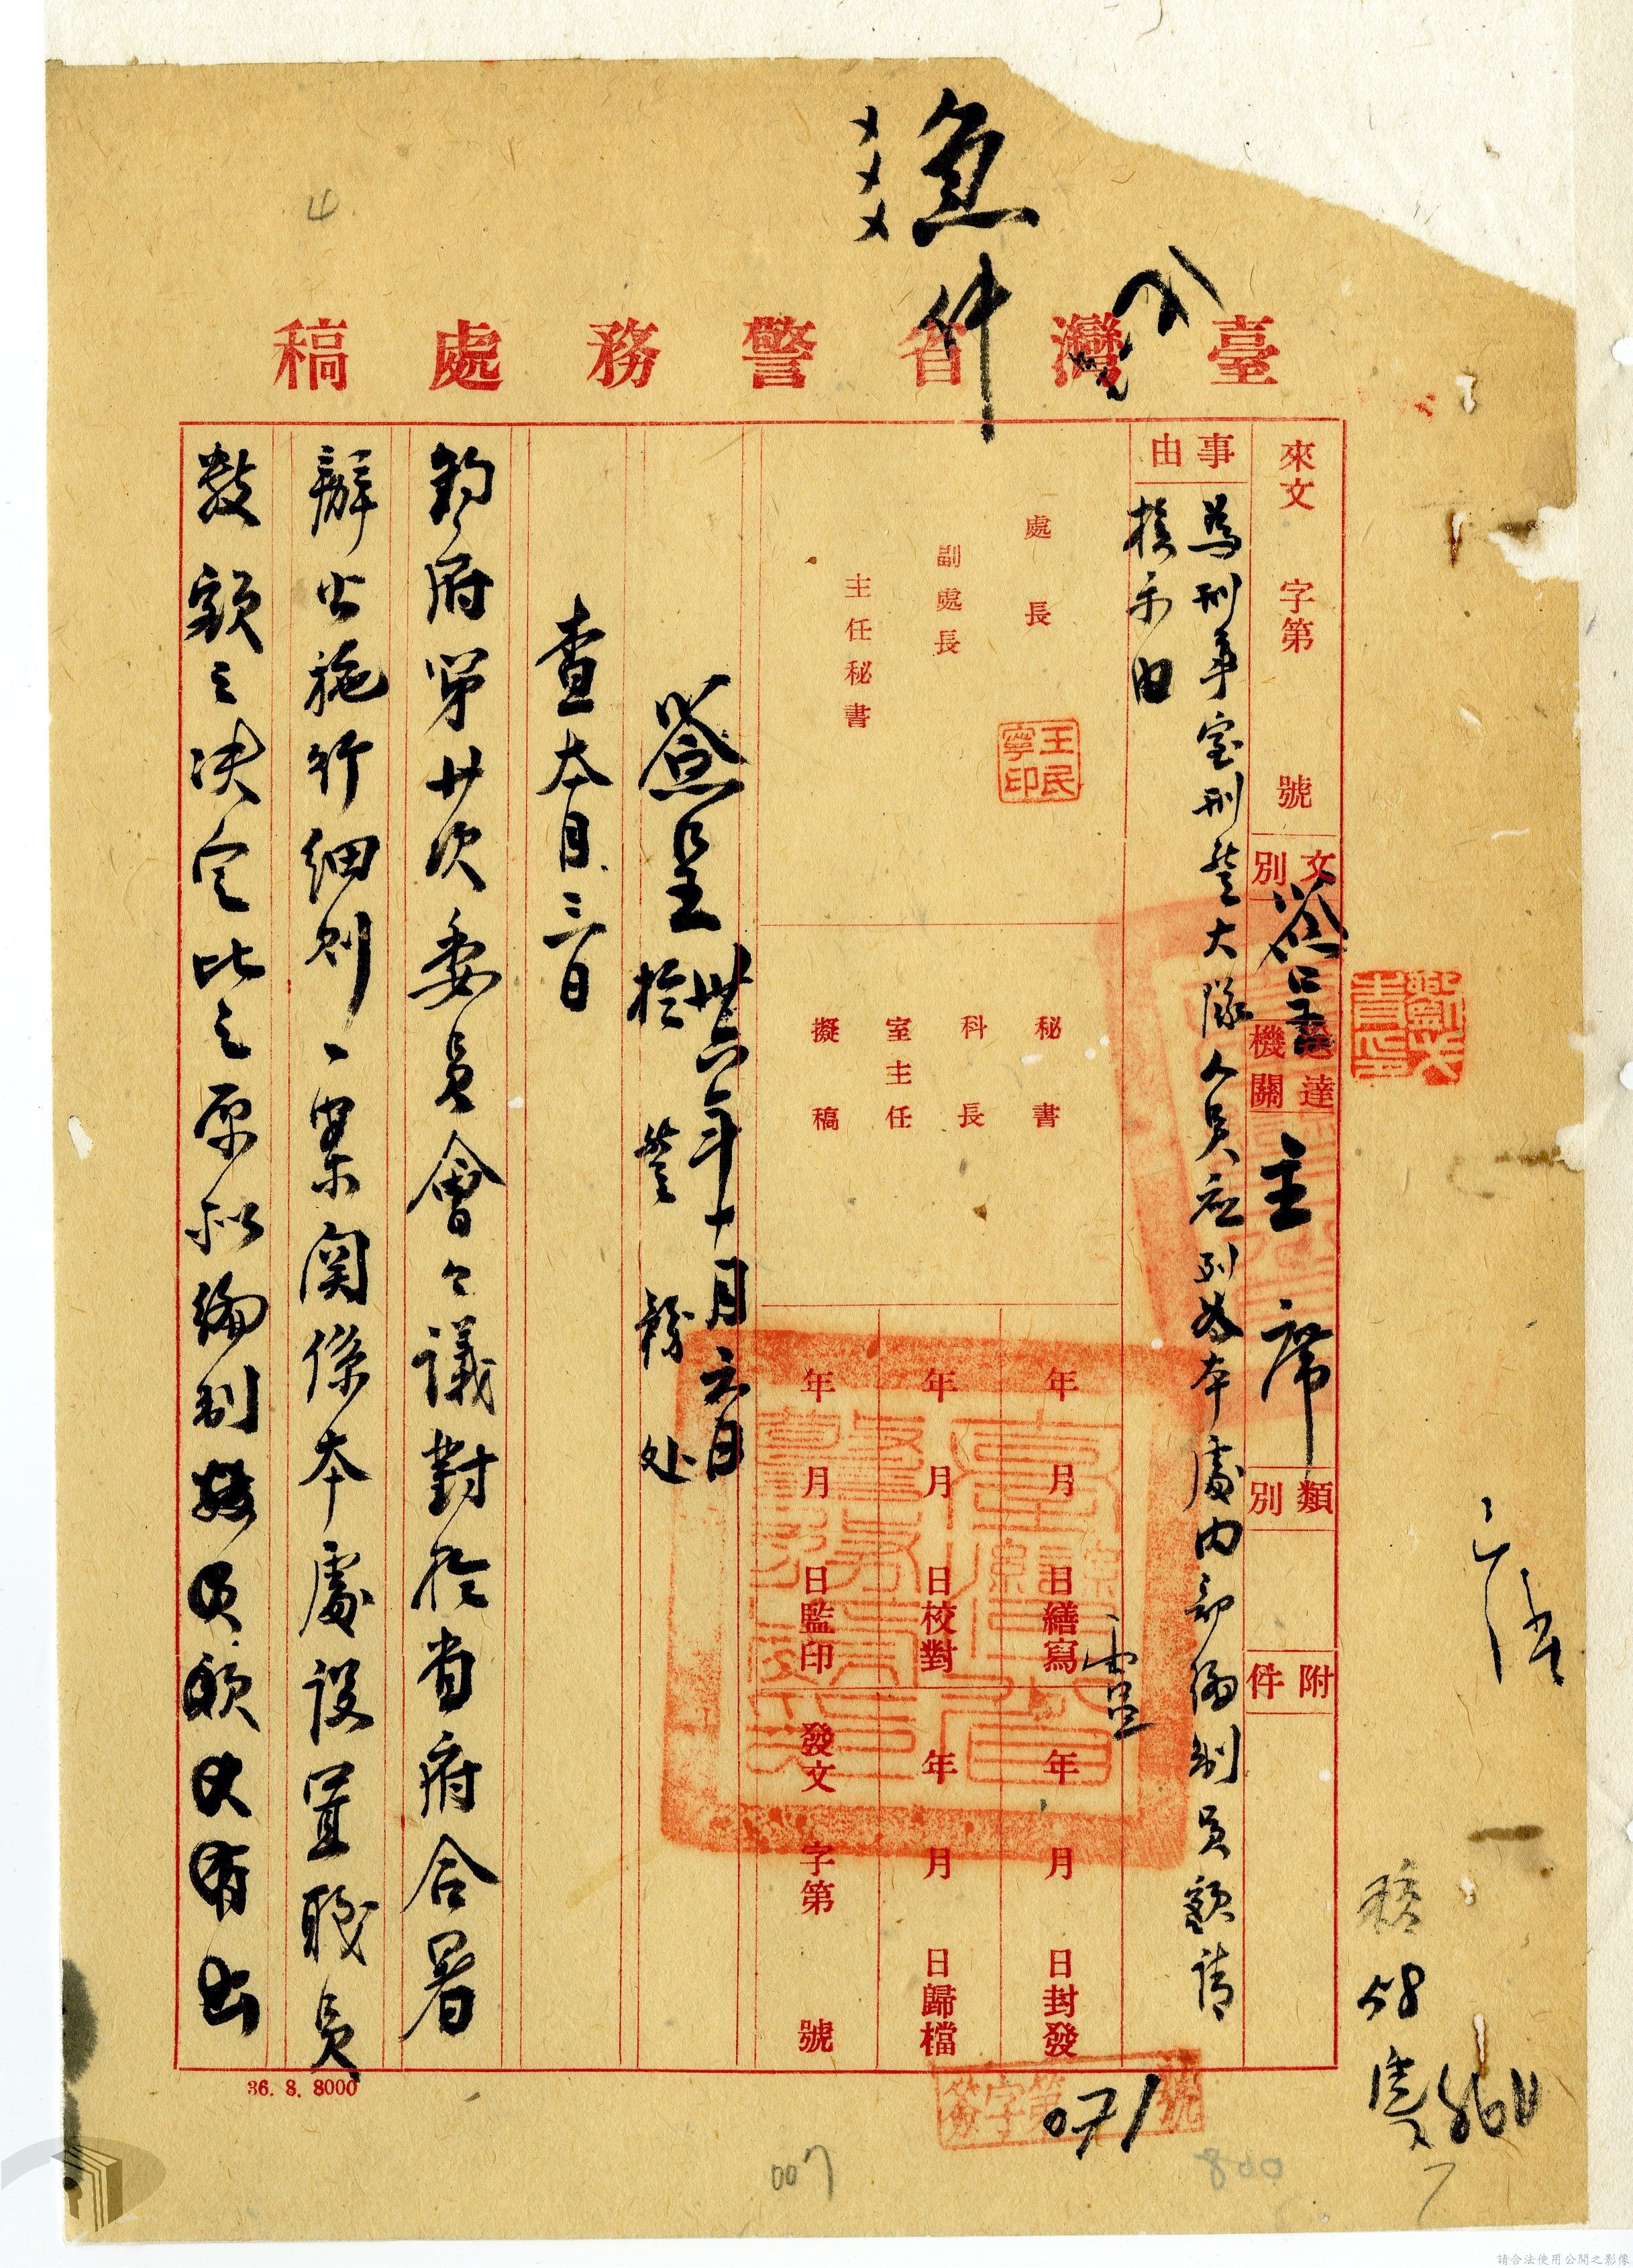 急件
臺灣省警務處稿
來文 字第 號
文別 簽呈
送達機關 主席
類別
附件
事由
為刑事室刑警大隊人員應列為本處內部編制員額請
核示由
處長
副處長
主任秘書
王民寧印
秘書
科長
室主任
擬稿
年 月 日繕寫
年 月 日校對
年 月 日監印
年 月 日封發
年 月 日歸檔
發文 字第 號
臺灣省警務處印
簽呈 卅六年十月六日
於 警務处
查本月三日
鈞府第廿次委員會會議對於省府合署
辦公施行細則一案關係本處設置職員
數額之決定比之原拟編制
簽字第071號
36. 8. 8000
007
800
請合法使用公開之影像